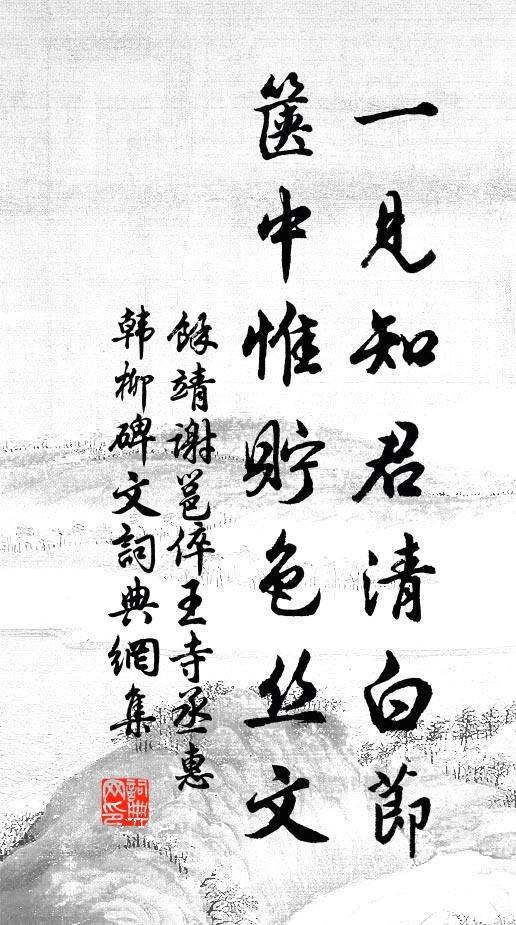 一見知君清白節
篋中惟貯色丝文
餘靖謝邕倅王寺丞惠
韩柳碑文詞典網集
詞典网印